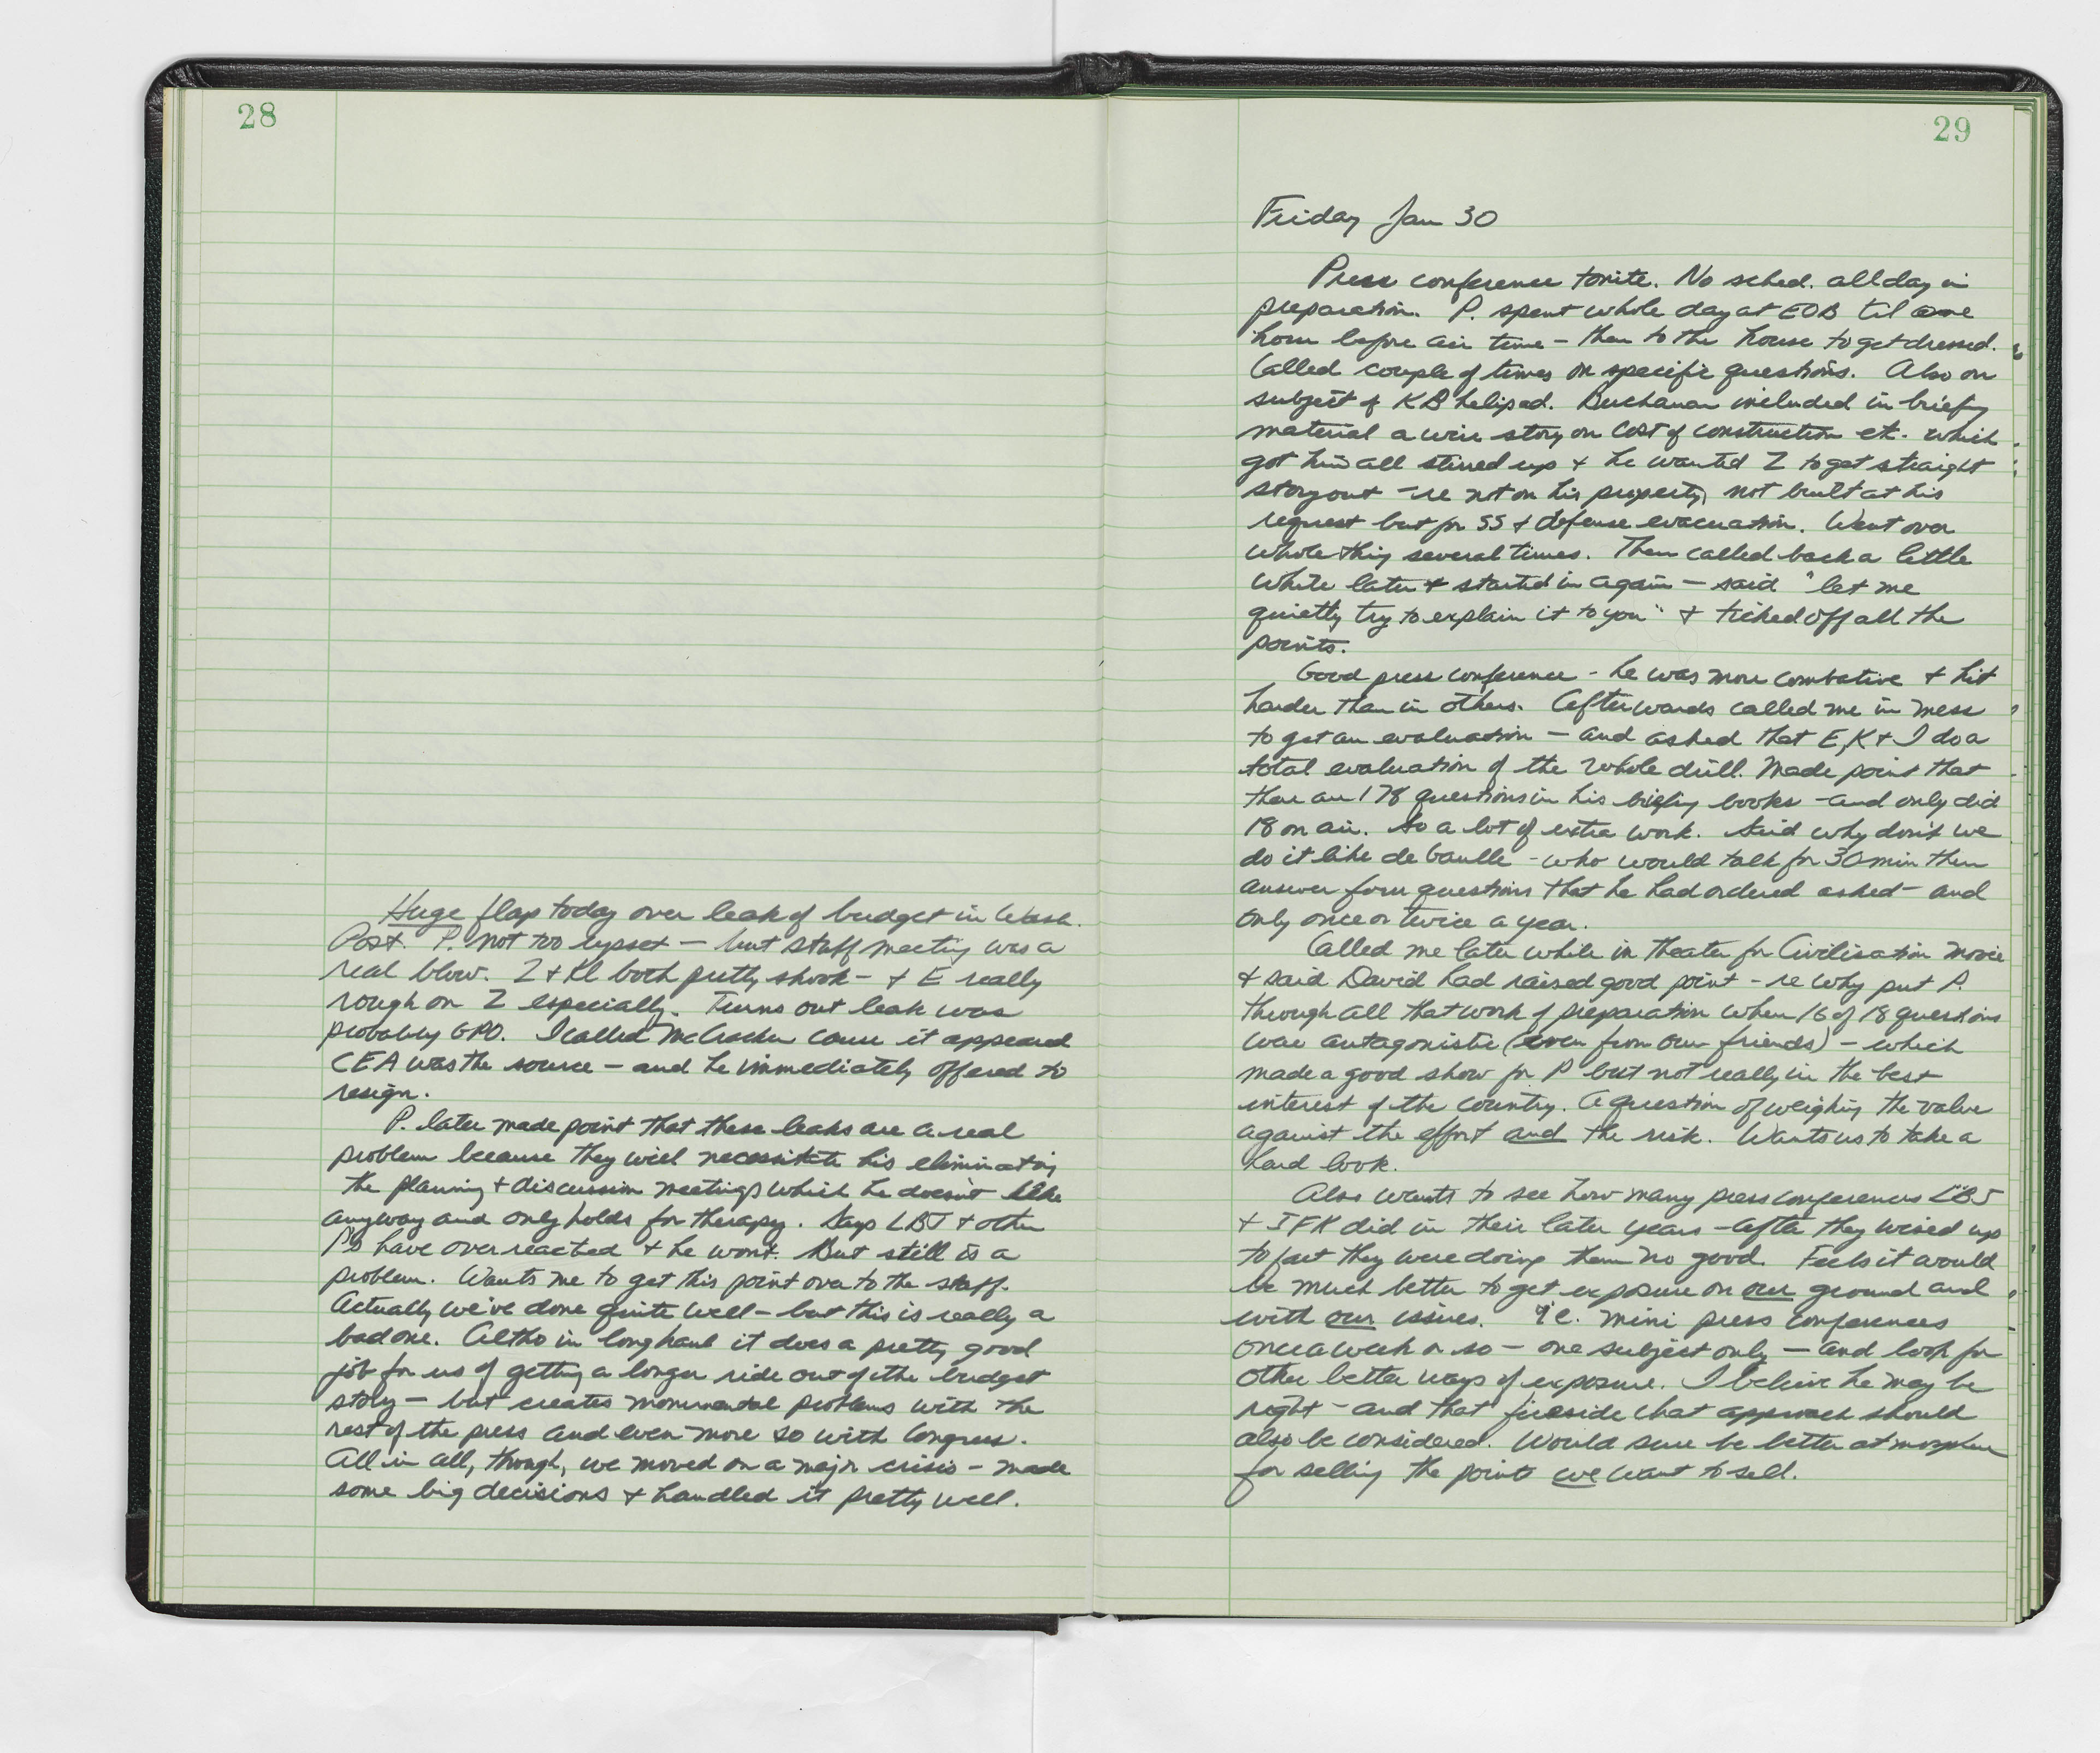 28
Huge flap today over leak of budget in Wash.
Post. P. not too upset – but staff meeting was a
real blow. Z + Kl both pretty shook – + E really
rough on Z especially. Turns out leak was
probably GPO. I called McCracken cause it appeared
CEA was the source – and he immediately offered to
resign.
P. later made point that these leaks are a real
problem because they will necessitate his eliminating
the planning + discussion meetings which he doesn't like
anyway and only holds for therapy. Says LBJ + other
P's have over reacted + he wont. But still is a
problem. Wants me to get this point over to the staff.
Actually we've done quite well – but this is really a
bad one. Altho in long haul it does a pretty good
job for us of getting a longer ride out of the budget
story – but creates monumental problems with the
rest of the press and even more so with Congress.
All in all, though, we moved on a major crisis – made
some big decisions + handled it pretty well.
29
Friday Jan 30
Press conference tonite. No sched. all day in
preparation. P. spent whole day at EOB til one
hour before air time – then to the house to get dressed.
Called couple of times on specific questions. Also on
subject of KB helipad. Buchanan included in briefing
material a wire story on cost of construction etc. which
got him all stirred up + he wanted Z to get straight
story out – re not on his property, not built at his
request but for SS + defense evacuation. Went over
whole thing several times. Then called back a little
while later + started in again – said "let me
quietly try to explain it to you" + ticked off all the
points.
Good press conference – he was more combative + hit
harder than in others. Afterwards called me in mess
to get an evaluation – and asked that E, K + I do a
total evaluation of the whole drill. Made point that
there are 178 questions in his briefing books – and only did
18 on air. So a lot of extra work. Said why don't we
do it like de Gaulle – who would talk for 30 min then
answer four questions that he had ordered asked – and
only once or twice a year.
Called me later while in theater for Civilisation movie
+ said David had raised good point – re why put P.
through all that work of preparation when 16 of 18 questions
were antagonistic (even from our friends) – which
made a good show for P but not really in the best
interest of the country. A question of weighing the value
against the effort and the risk. Wants us to take a
hard look.
Also wants to see how many press conferences LBJ
+ JFK did in their later years – after they wised up
to fact they were doing them no good. Feels it would
be much better to get exposure on our ground and
with our issues. ie. mini press conferences
once a week or so – one subject only – and look for
other better ways of exposure. I believe he may be
right – and that fireside chat approach should
also be considered. Would sure be better atmosphere
for selling the points we want to sell.